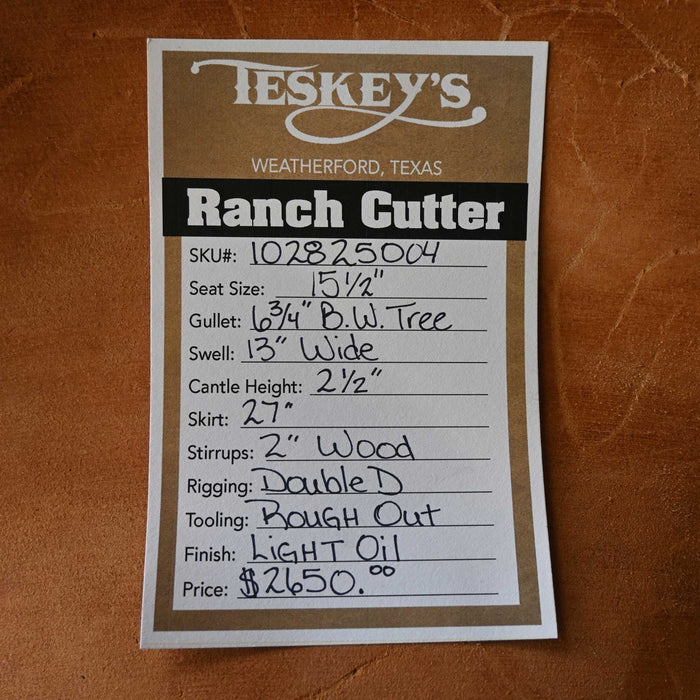 TESKEY'S
WEATHERFORD, TEXAS
Ranch Cutter
SKU#: 102825004
Seat Size: 15 1/2"
Gullet: 6 3/4" B.W. Tree
Swell: 13" Wide
Cantle Height: 2 1/2"
Skirt: 27"
Stirrups: 2" Wood
Rigging: Double D
Tooling: ROUGH Out
Finish: LIGHT Oil
Price: $2650.00